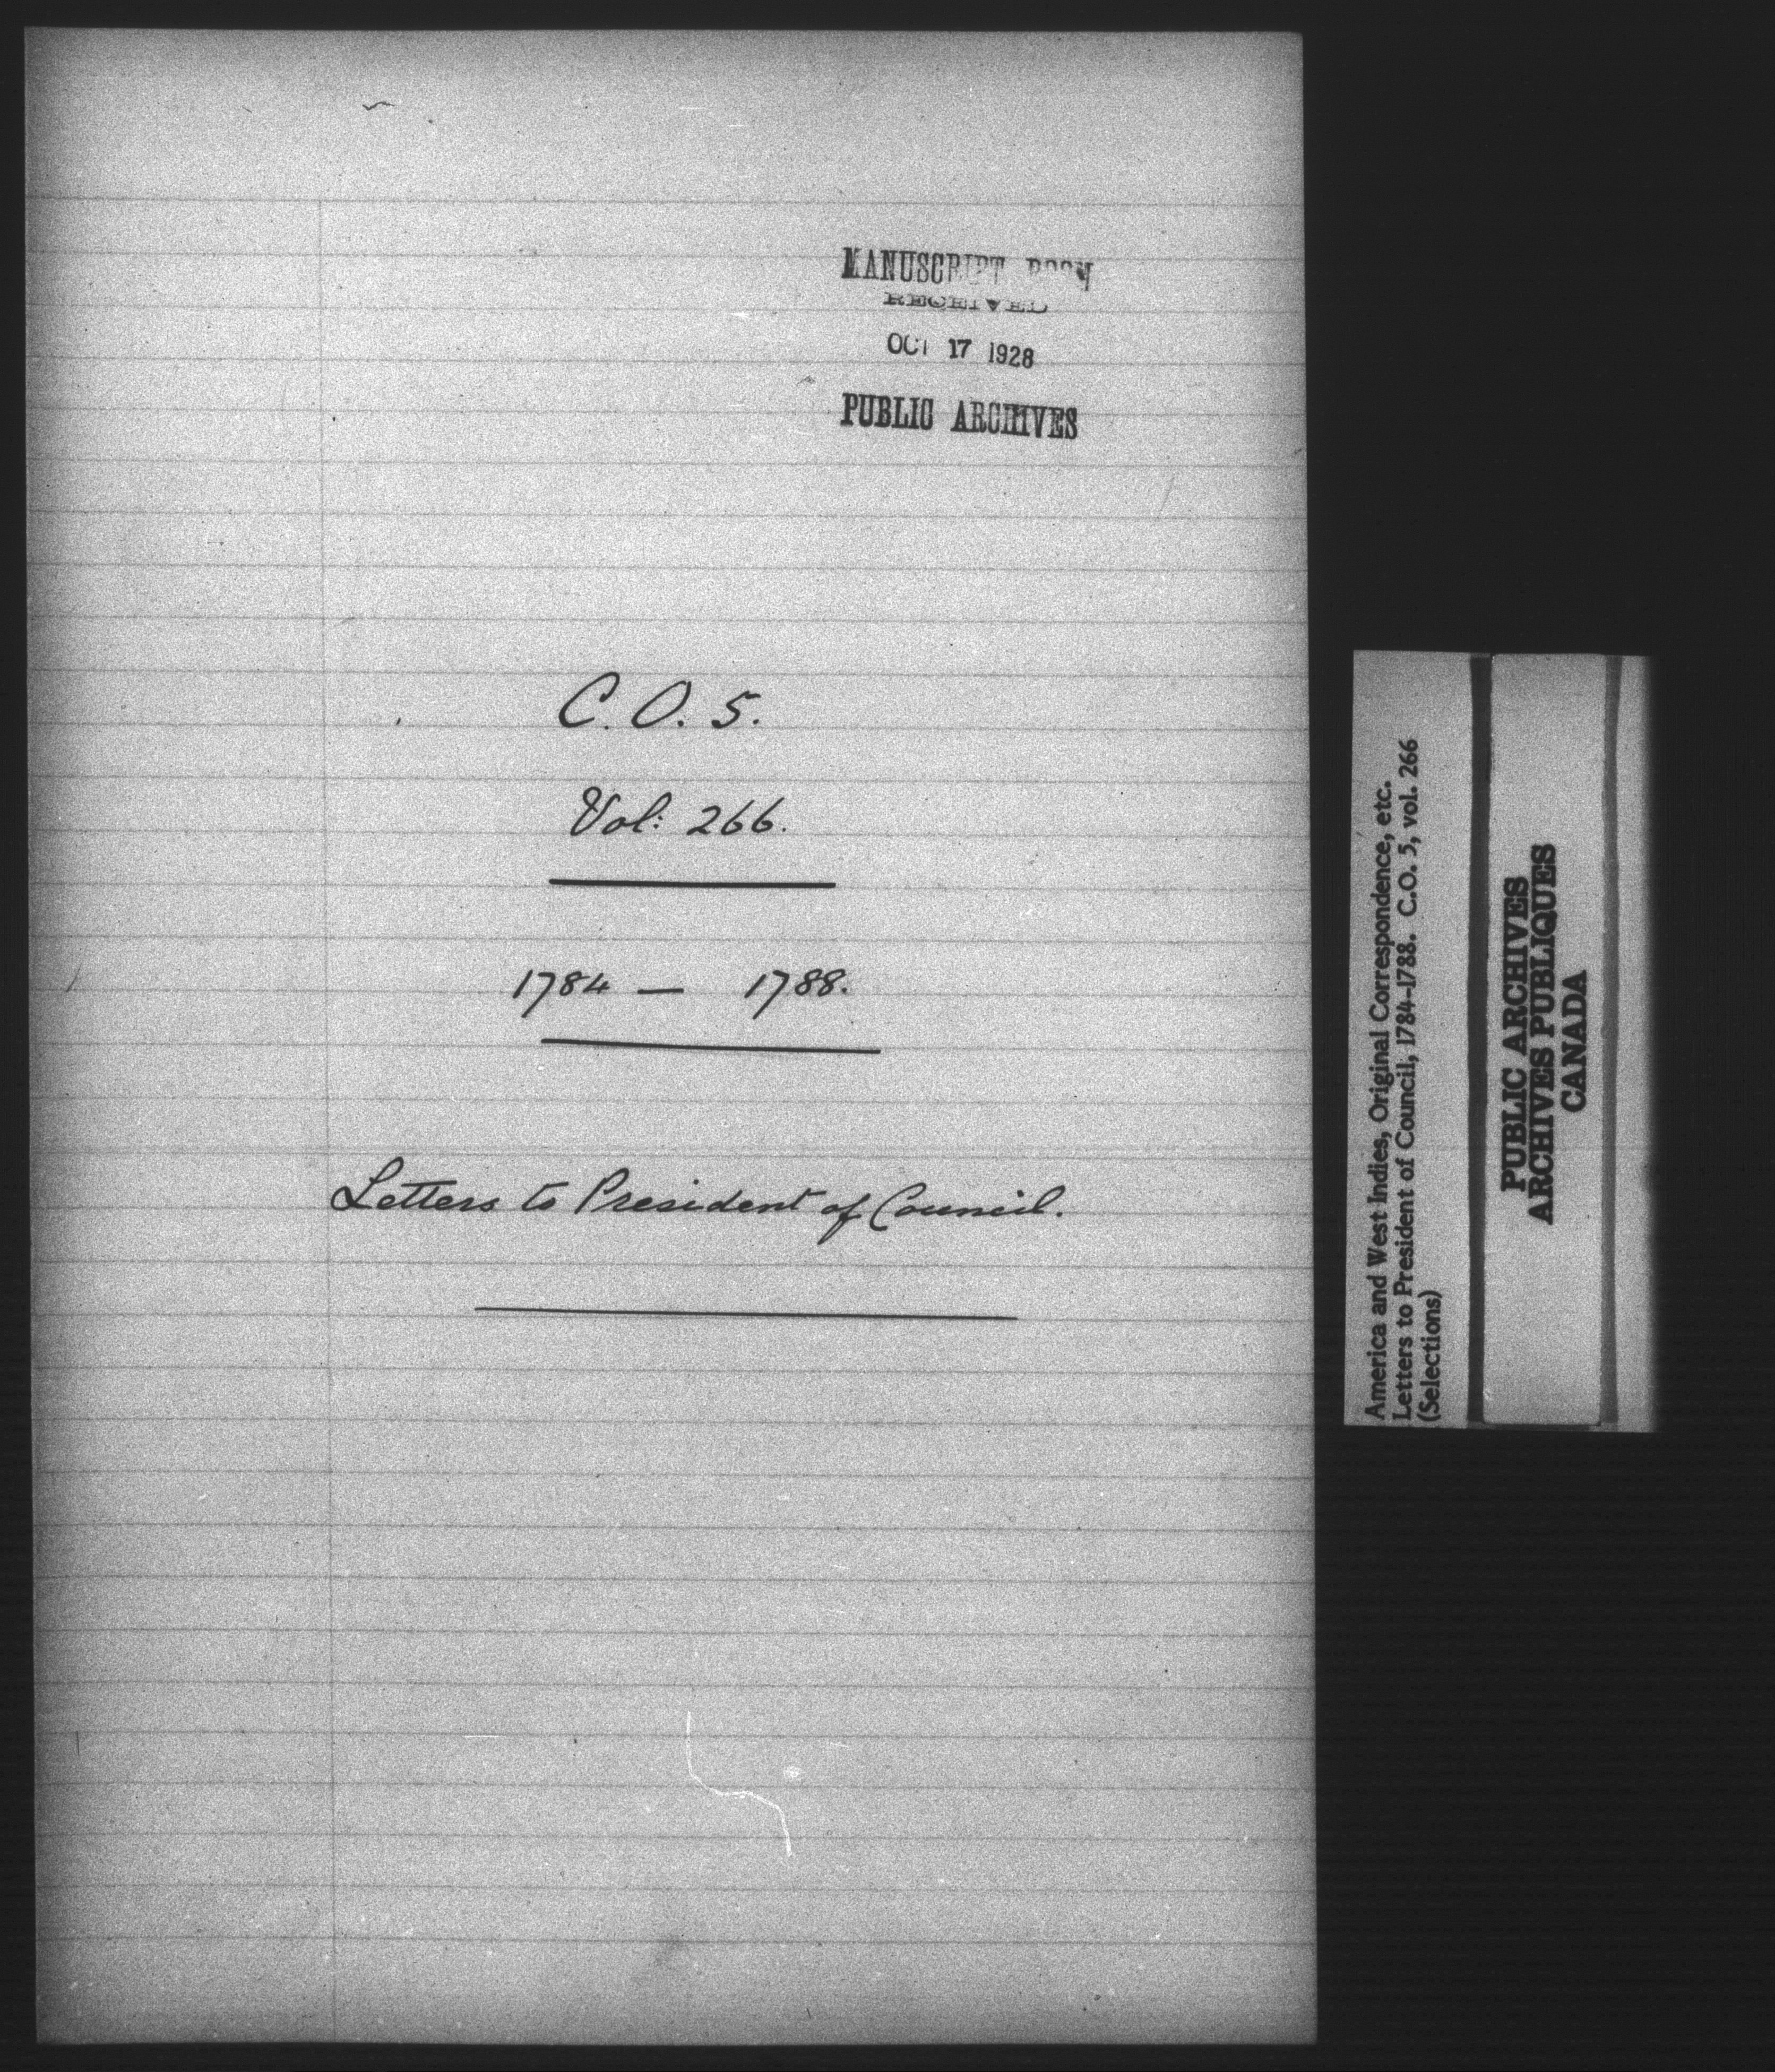 MANUSCRIPT ROOM
RECEIVED
OCT 17 1928
PUBLIC ARCHIVES
C. O. 5.
Vol: 266.
1784 — 1788.
Letters to President of Council.
America and West Indies, Original Correspondence, etc.
Letters to President of Council, 1784-1788. C.O. 5, vol. 266
(Selections)
PUBLIC ARCHIVES
ARCHIVES PUBLIQUES
CANADA